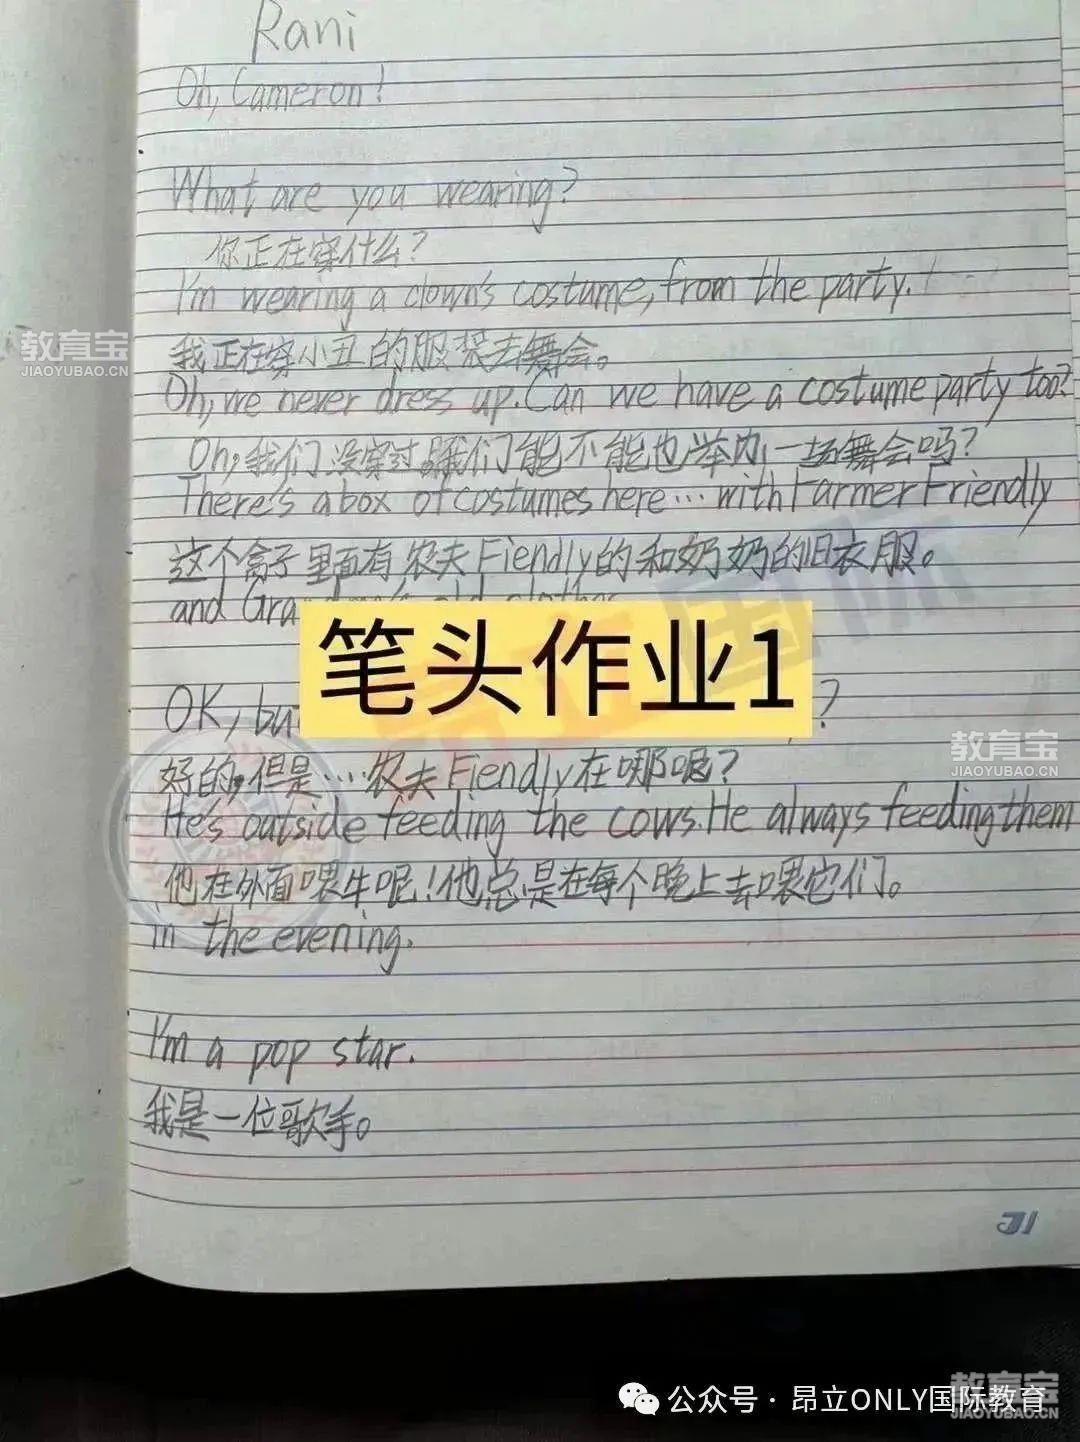 Rani
Oh, Cameron!
What are you wearing?
你正在穿什么?
I'm wearing a clown's costume, from the party.!
教育宝
JIAOYUBAO.CN
我正在穿小丑的服装去舞会。
Oh, we never dress up. Can we have a costume party too?
Oh,我们没穿过,我们能不能也举办一场舞会吗?
There's a box of costumes here... with Farmer Friendly
这个盒子里面有农夫Fiendly的和奶奶的旧衣服。
and Grandma's old clothes
笔头作业1
OK, bu ?
教育宝
JIAOYUBAO.CN
好的,但是...农夫Fiendly在哪呢?
He's outside feeding the cows. He always feeding them
他在外面喂牛呢!他总是在每个晚上去喂它们。
in the evening.
I'm a pop star.
我是一位歌手。
公众号·昂立ONLY国际教育
教育宝
JIAOYUBAO.CN